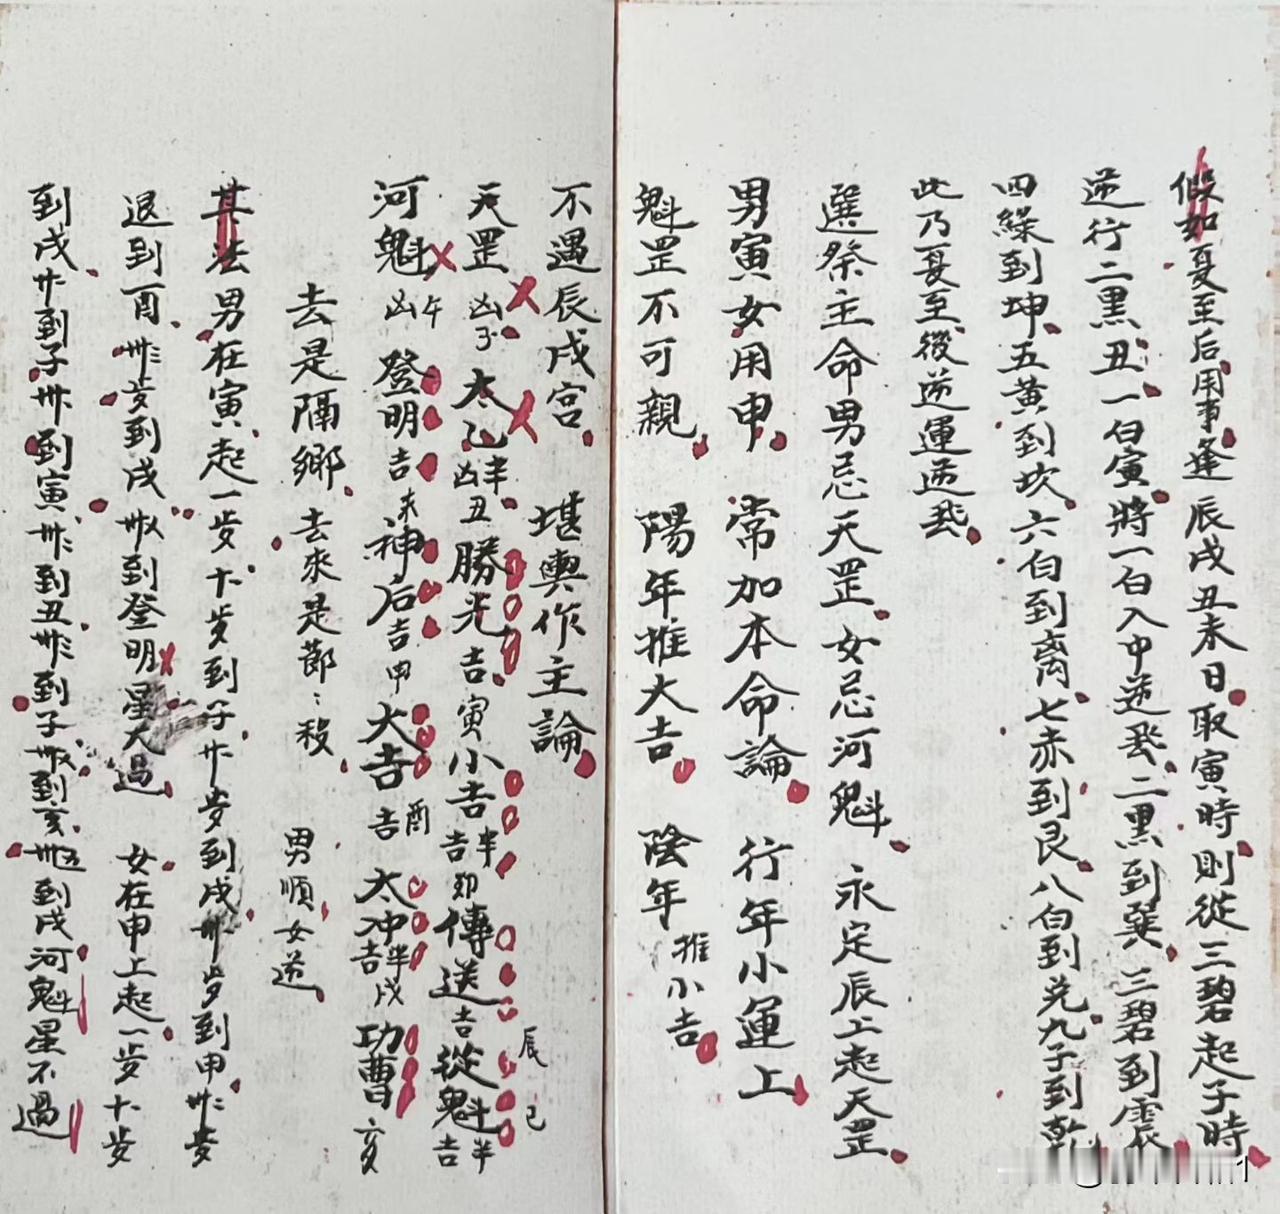 假如夏至后用事逢辰戌丑未日取寅時則從三碧起子時
逆行二黑丑一白寅將一白入中逆飛二黑到巽三碧到震
四綠到坤五黃到坎六白到离七赤到艮八白到兌九子到乾
此乃夏至後逆運逆飛
選祭主命男忌天罡女忌河魁 永定辰上起天罡
男寅女用申 常加本命論 行年小運上
魁罡不可親 陽年推大吉 陰年推小吉
不遇辰戌宮 堪輿作主論
天罡凶子 太乙半凶丑 勝光吉寅 小吉半吉卯 傳送吉辰 從魁半吉巳
河魁凶午 登明吉未 神后吉申 大吉吉酉 太冲半吉戌 功曹亥
去是隔鄉去來是節:殺 男順女逆
其法男在寅起一步十步到子廿步到戌卅步到申卌步
退到酉 步到戌 到登明星大過 女在申上起一步十步
到戌廿到子卅到寅 到丑 到子 到亥 到戌河魁星不過